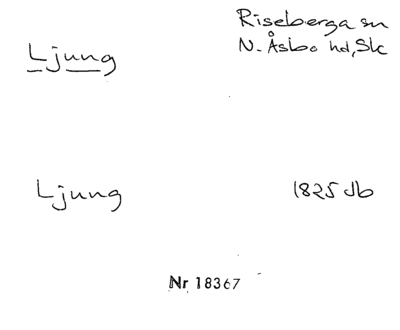 Riseberga sn
Ljung
N. Åsbo hd, Skc
Ljung
1825 Jb
Nr 18367